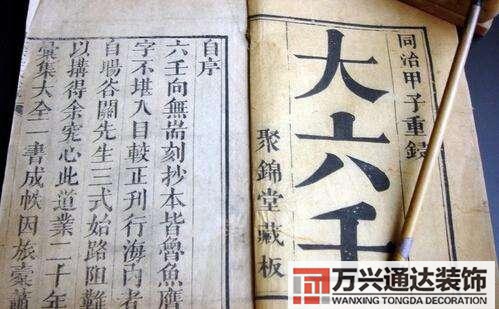 同治甲子重鐫
大六壬
聚錦堂藏板
自序
六壬向無耑刻抄本皆魯魚贗
字不堪入目較正刊行海內者
自場谷關先生三式始路阻難
以搆得余究心此道業二十年
彙集大全一書成帙因旅橐蕭
万兴通达装饰
WANXING TONGDA DECORATION